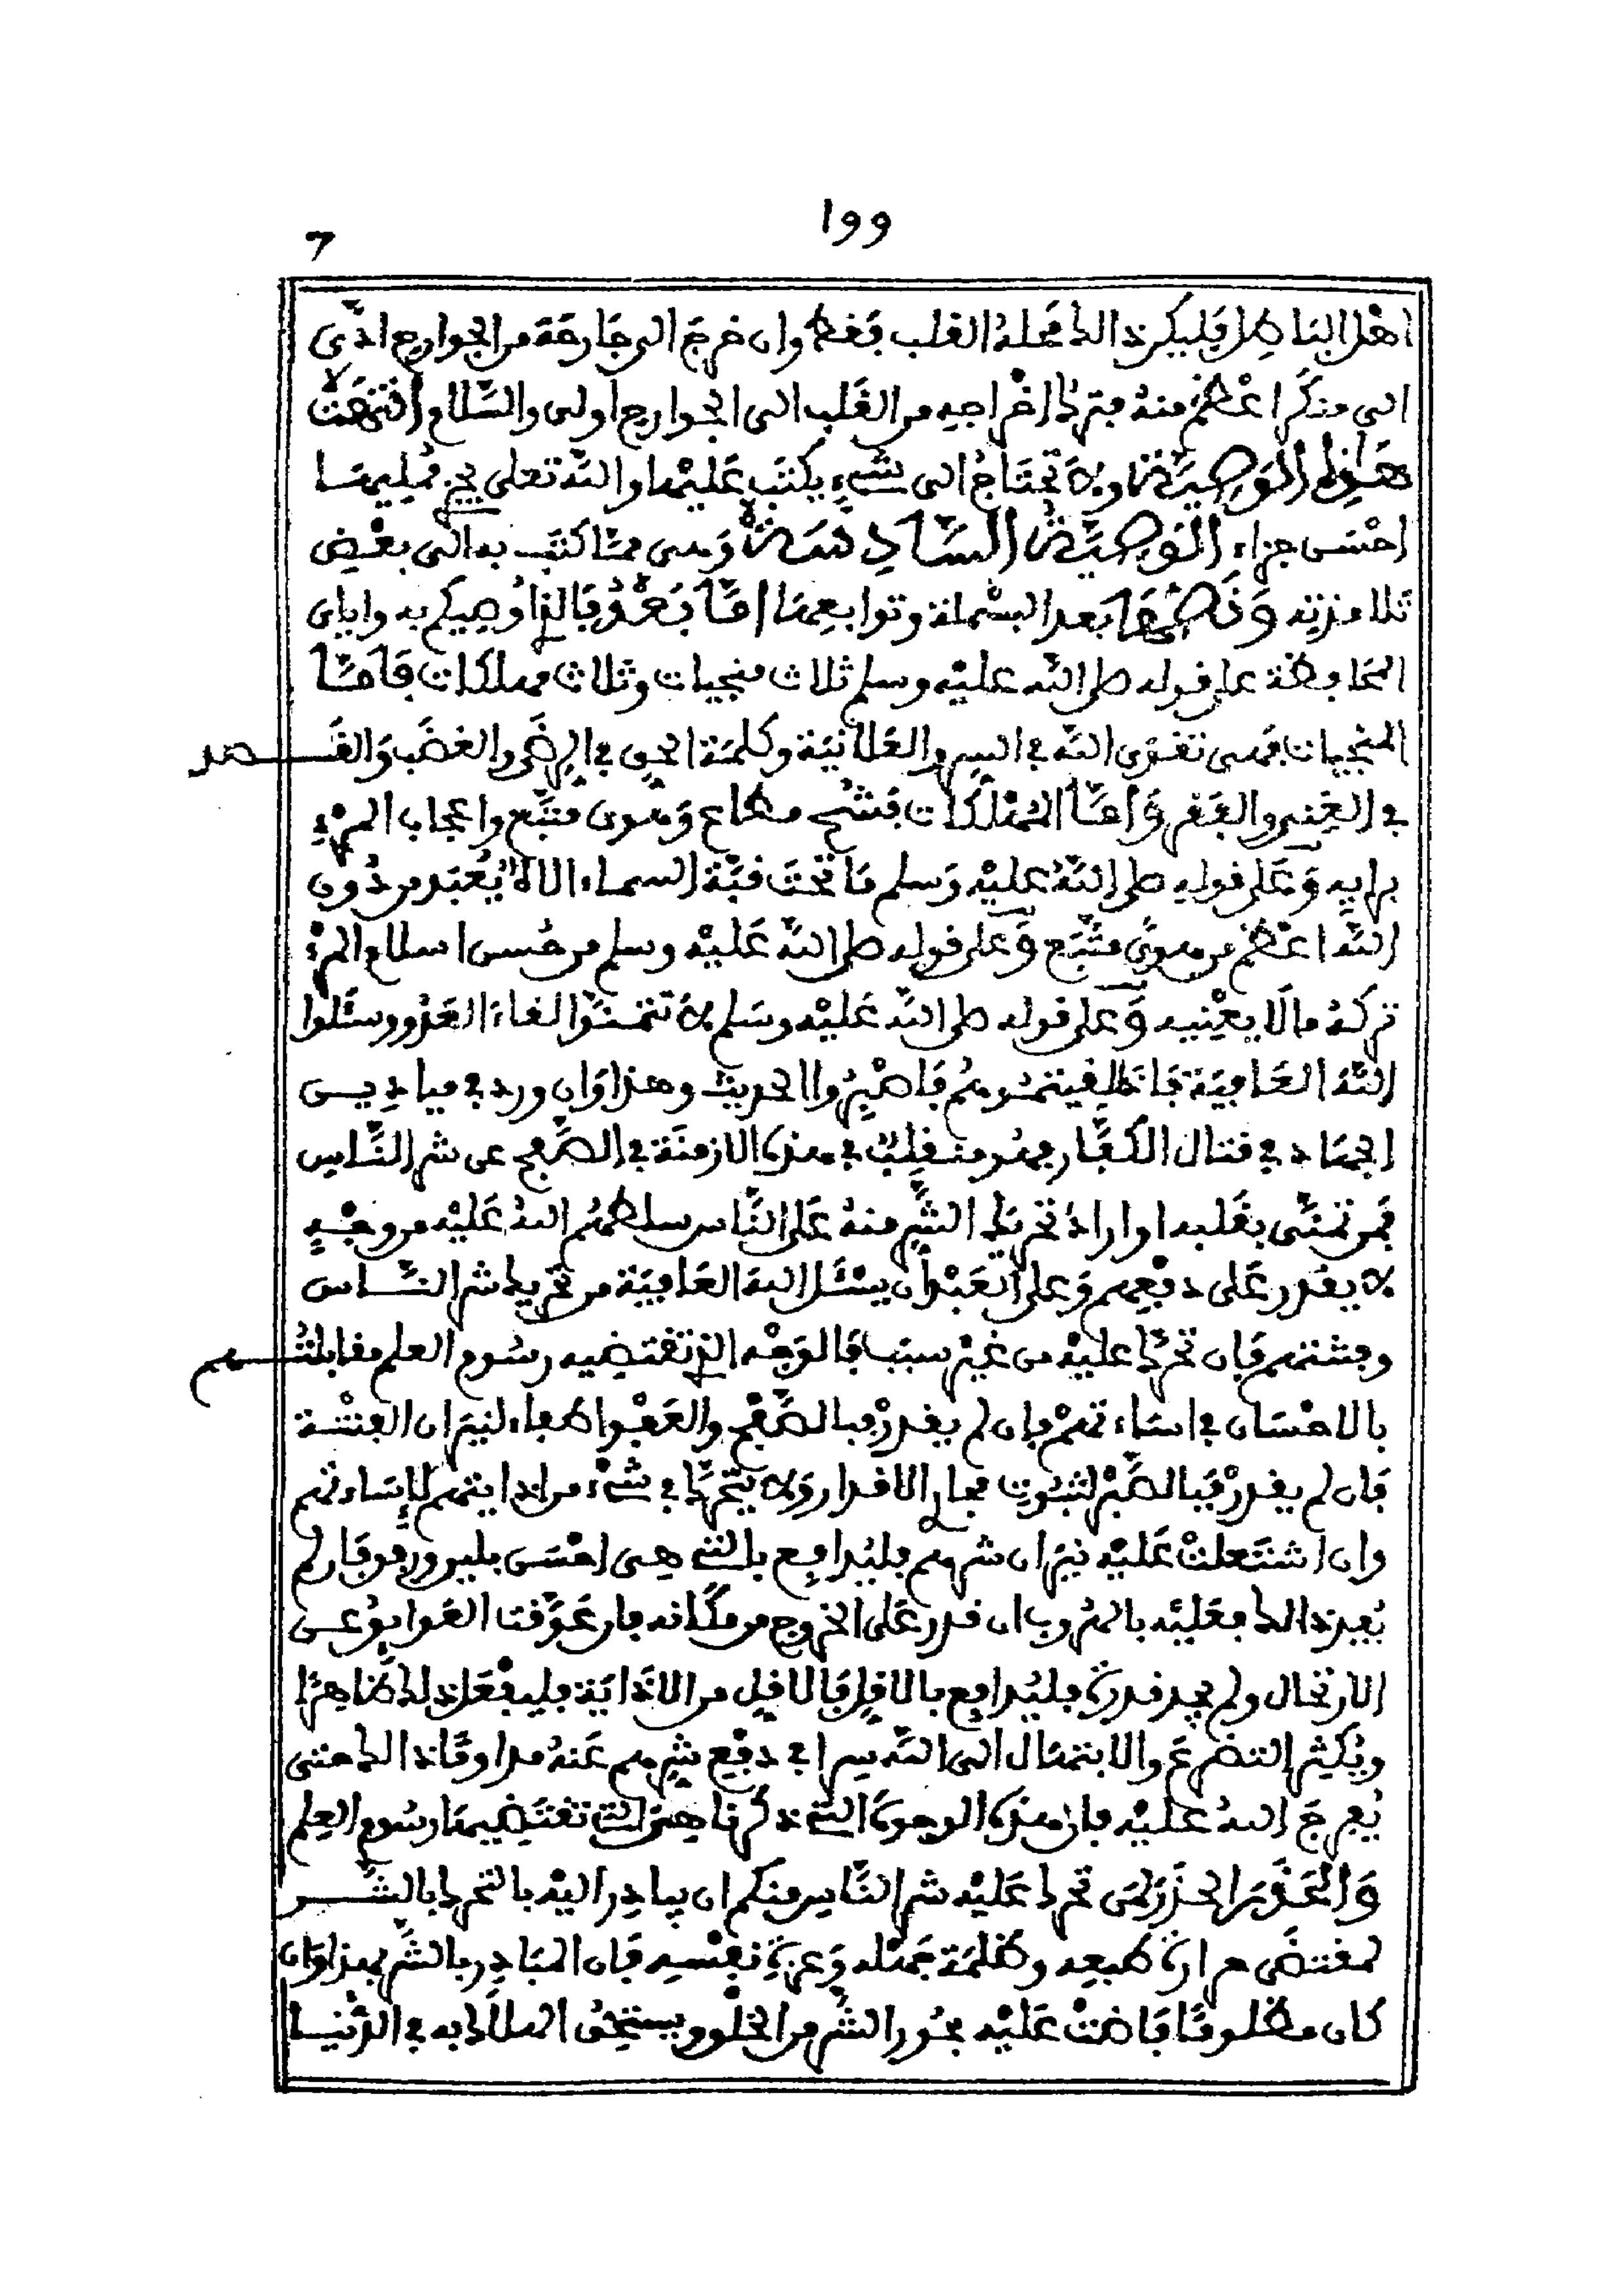 ١٩٩
7
اهل الباطل فليكن ذالك محله القلب فقط وان خرج الى جارحة من الجوارح ادى
الى منكر اعظم منه فترك اخراجه من القلب الى الجوارح اولى والسلام انتهت
هذه الوصية ولا تحتاج الى شيء يكتب عليها والله تعلى يجز مليها
احسن جزاء الوصية السادسة وهى مما كتب به الى بعض
تلامذته ونصها بعد البسملة وتوابعها اما بعد فالذي اوصيكم به واياي
المحافظة على قوله صلى الله عليه وسلم ثلاث منجيات وثلاث مهلكات فاما
المنجيات فهى تقوى الله في السر والعلانية وكلمة الحق في الرضى والغضب والقصد
في الغنى والفقر واما المهلكات فشح مطاع وهوى متبع واعجاب المرء
برايه وعلى قوله صلى الله عليه وسلم ما تحت قبة السماء الاه يعبد من دون
الله اعظم من هوى متبع وعلى قوله صلى الله عليه وسلم من حسن اسلام المرء
تركه ما لا يعنيه وعلى قوله صلى الله عليه وسلم لا تتمنوا لقاء العدو وسئلوا
الله العافية فاذا لقيتموهم فاصبروا الحديث وهذا وان ورد في ميادين
الجهاد في قتال الكفار فهو منقلب في هذه الازمنة في الصفح عن شر الناس
فمن تمنى بقلبه او اراد تحريك الشر منه على الناس سلطهم الله عليه من وجه
لا يقدر على دفعهم وعلى العبد ان يسئل الله العافية من تحريك شر الناس
وفتنتهم فان تحرك عليه من غير سبب فالوجه الذي تقتضيه رسوم العلم مقابلتهم
بالاحسان في اساءتهم فان لم يقدر فبالصفح والعفو اطفاء لنيران الفتنة
فان لم يقدر فبالصبر لثبوت مجاري الاقدار ولا يتحرك في شيء من اذايتهم لإساءتهم
وان اشتعلت عليه نيران شرهم فليدافع بالتي هي احسن بلين ورفق فان لم
يفد ذالك فعليه بالهروب ان قدر على الخروج من مكانه فان عوقت العوايق عن
الارتحال ولم يجد قدرة فليدافع بالاقل فالاقل من الاذاية فليفعل ذلك ظاهرا
ويكثر التضرع والابتهال الى الله سرا في دفع شرهم عنه مداوما ذالك حتى
يفرج الله عليه فان هذه الوجوه التي ذكرنا هي التي تقتضيها رسوم العلم
والحذر الحذر لمن تحرك عليه شر الناس منكم ان يبادر اليه بالتحرك بالشر
لمقتضى حرارة طبعه وظلمة جهله وعزة نفسه فان المبادر بالشر بهذا وان
كان مظلوما فاضت عليه بحور الشر من الخلق ويستحق الهلاك به في الدنيا